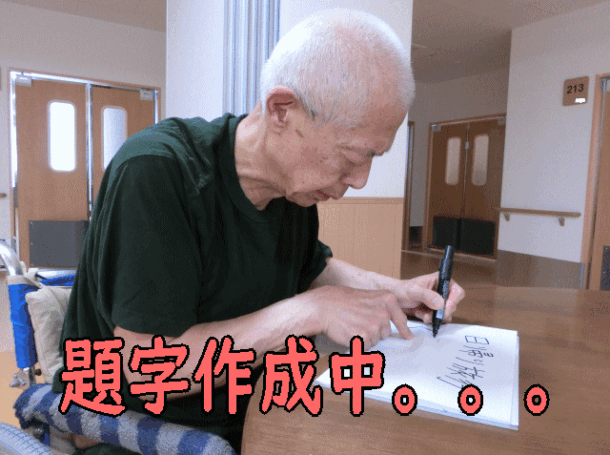 213
題字作成中。。。